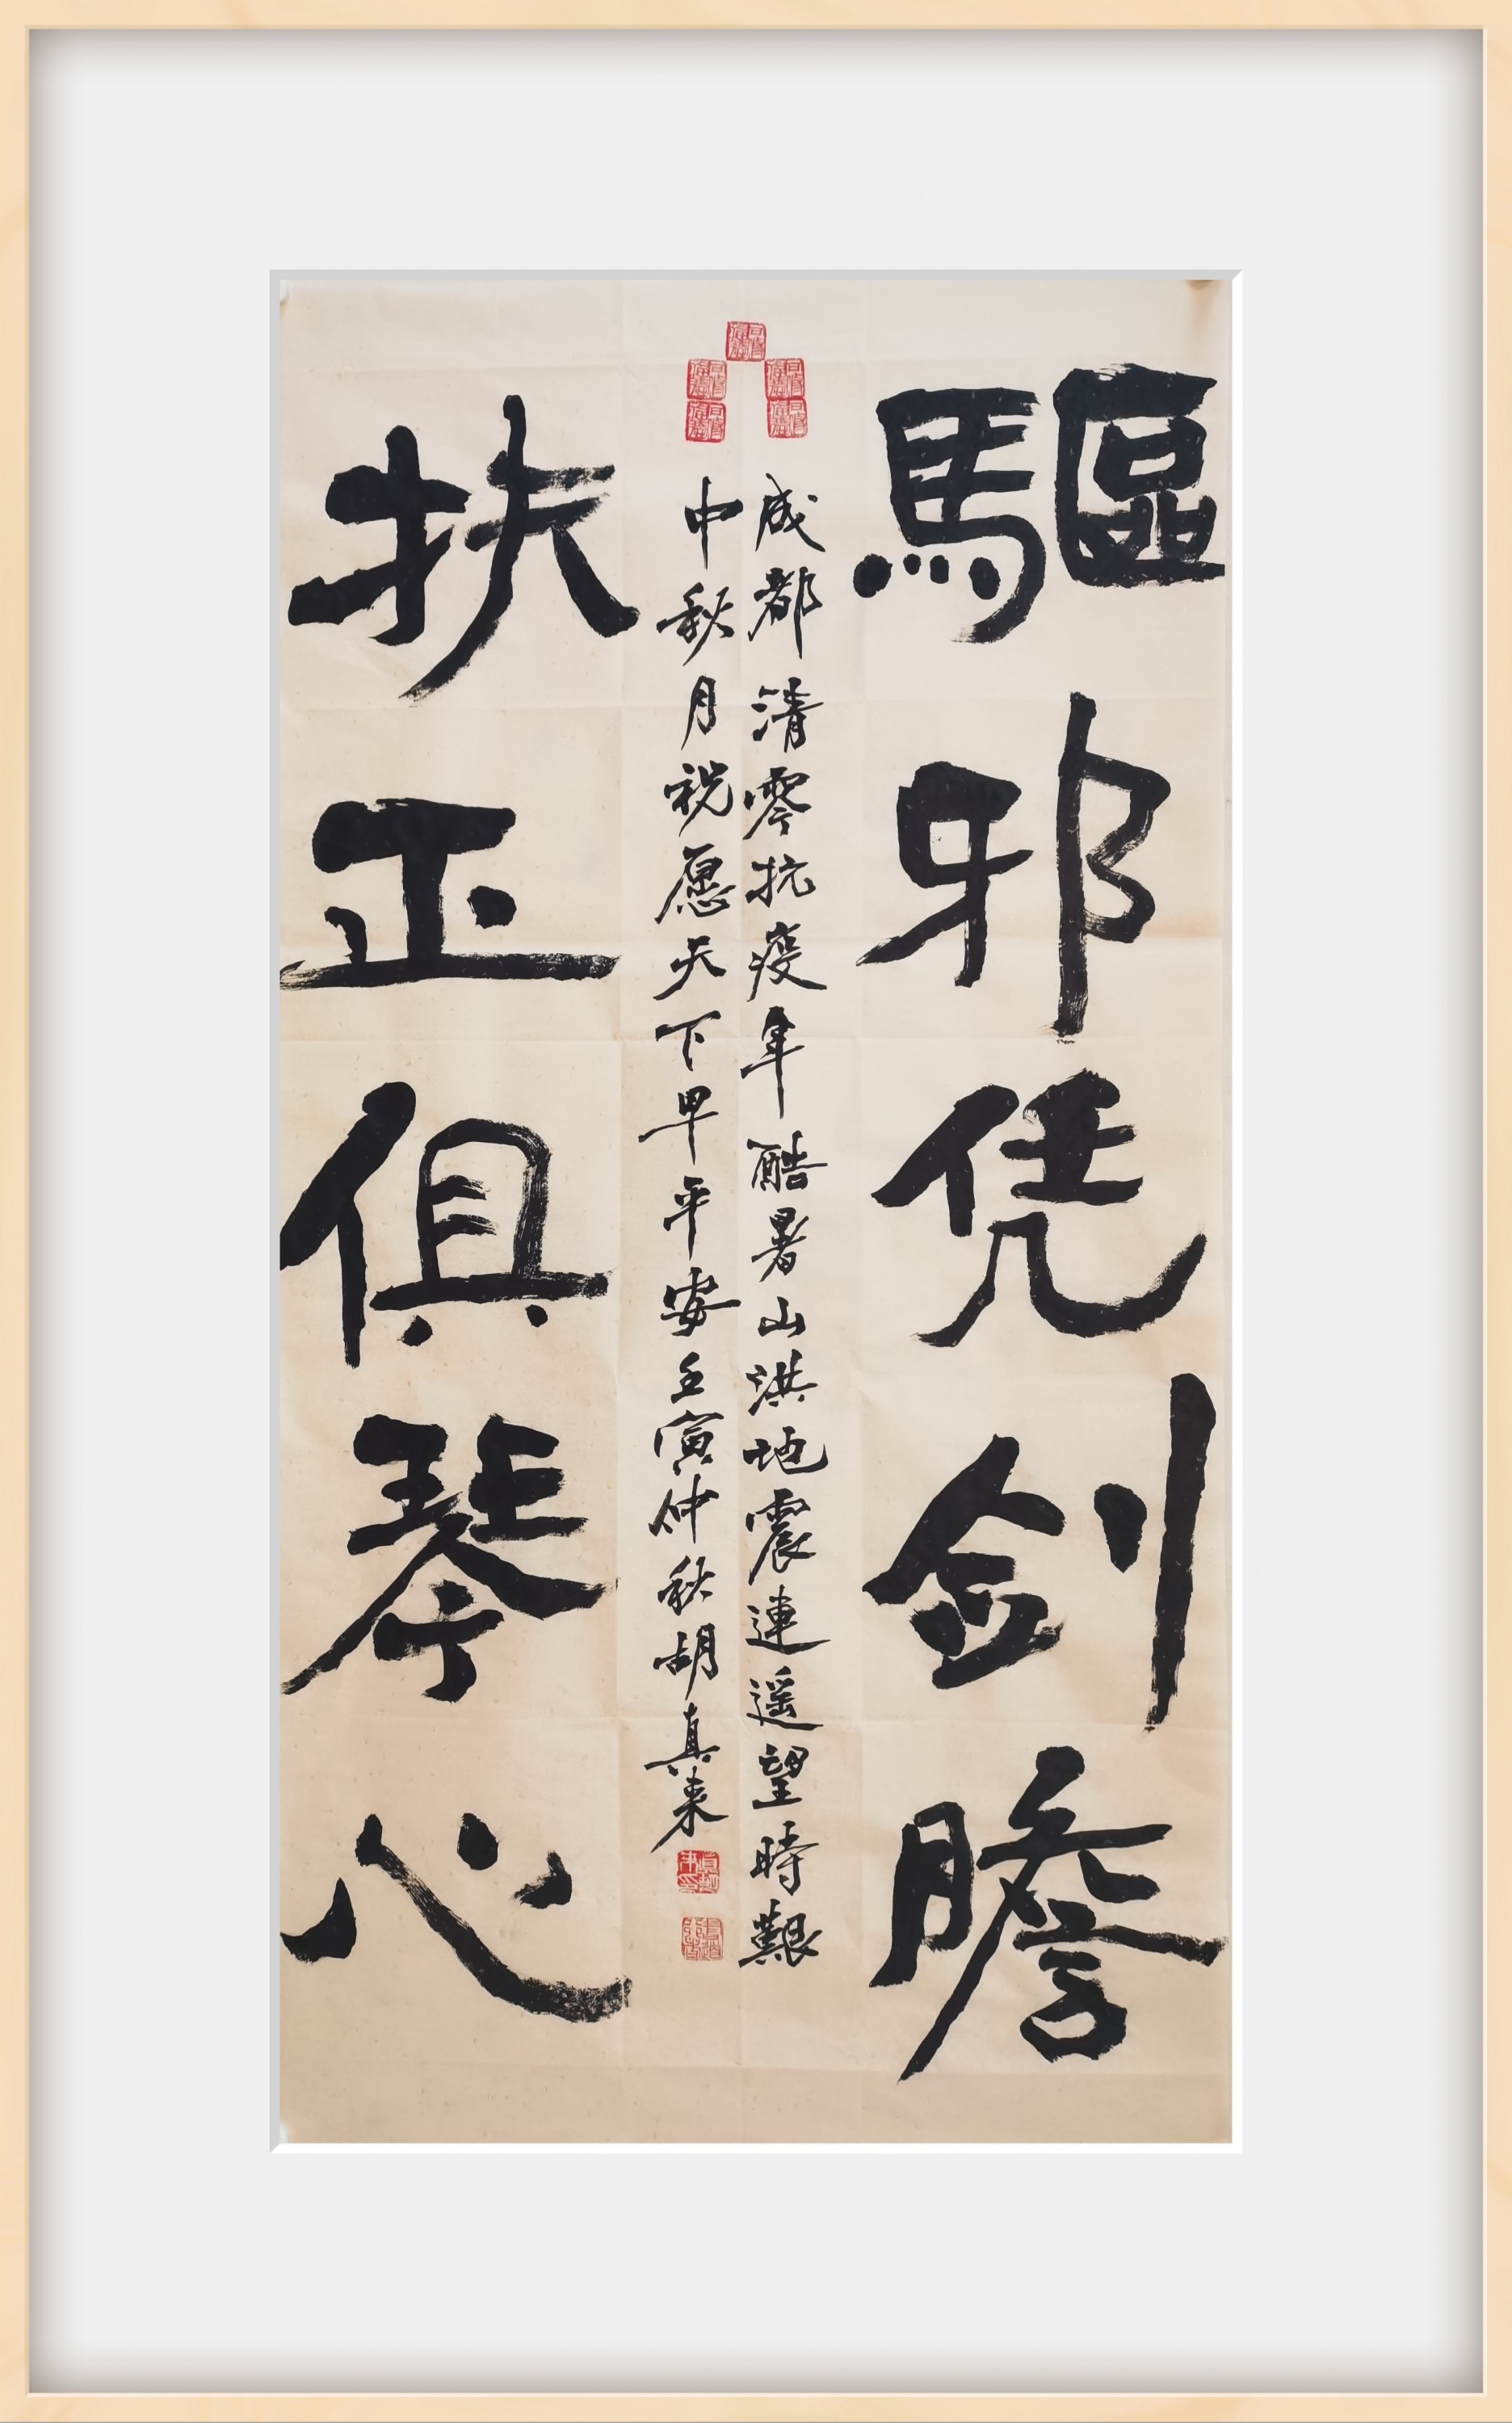 驅邪凭剑膽
成都清零抗疫年酷暑山洪地震連遥望時艱
中秋月祝愿天下早平安壬寅仲秋胡真来
扶正俱琴心